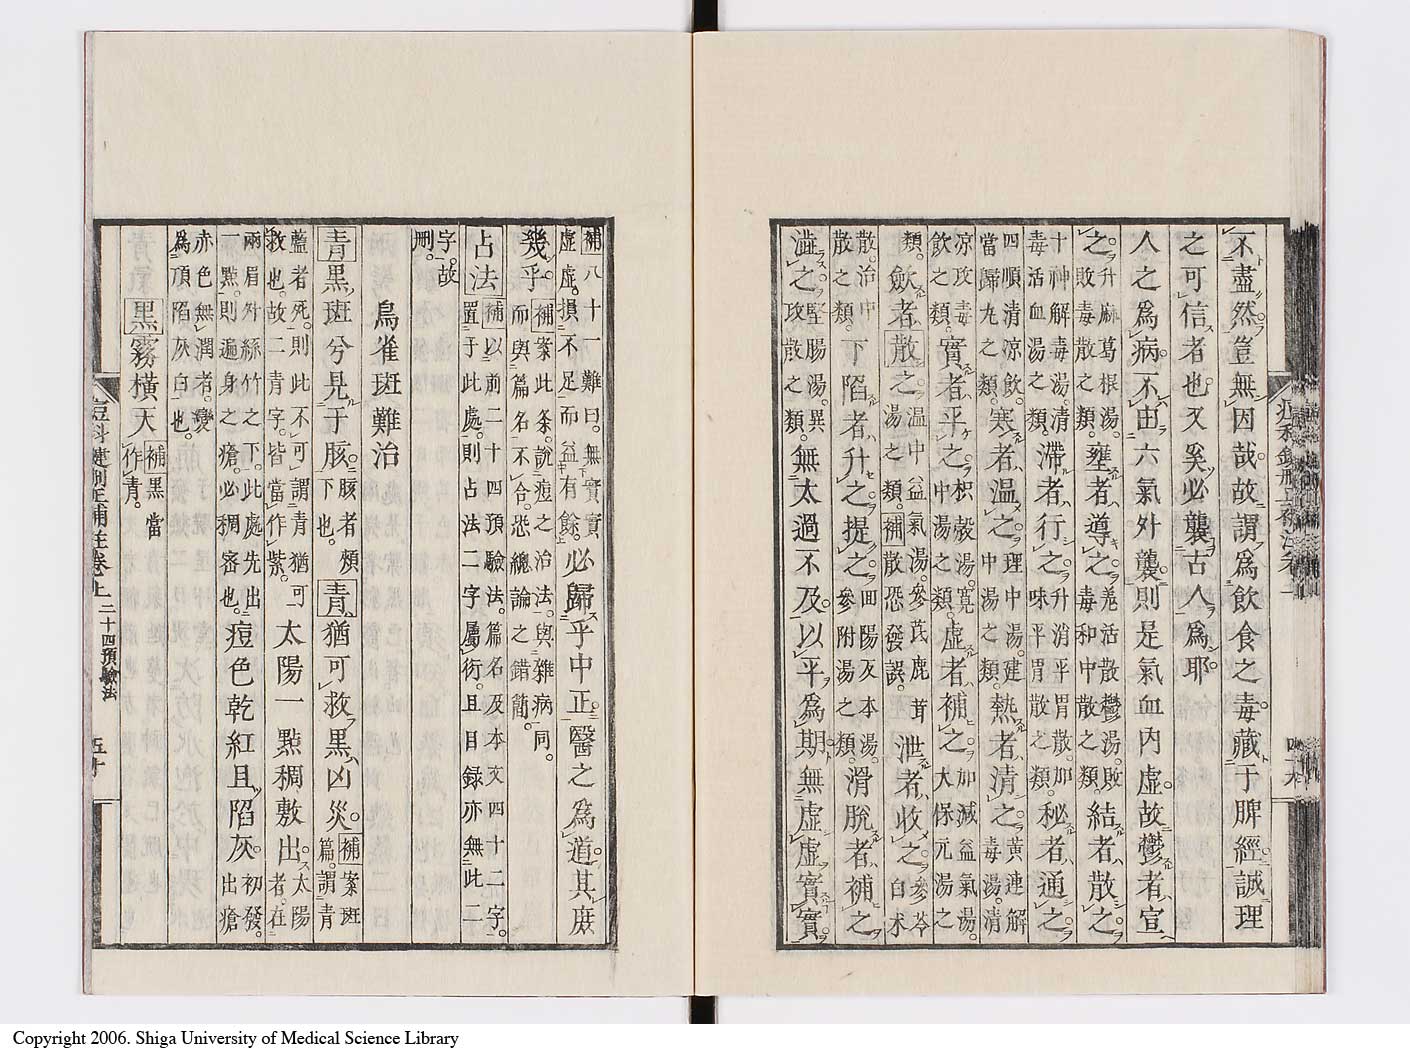 不盡然豈無因哉故謂爲飲食之毒藏于脾經誠理
之可信者也又奚必襲古人爲耶
人之爲病不由六氣外襲則是氣血内虚故鬱者宣
之升麻葛根湯敗毒散之類壅者導之羗活散鬱湯敗毒和中散之類結者散之
十神解毒湯清毒活血湯之類滯者行之升消平胃散加味平胃散之類秘者通之
四順清凉飲當歸丸之類寒者温之理中湯建中湯之類熱者清之黄連解毒湯清
凉攻毒飲之類實者平之枳殻湯寛中湯之類虚者補之加減益氣湯大保元湯之
類歛者散之温中益氣湯參芪鹿茸湯之類補散恐發誤泄者收之參苓白术
散治中散之類下陷者升之提之回陽反本湯參附湯之類滑脱者補之
澁之堅腸湯異攻散之類無太過不及以平爲期無虚虚實實
補八十一難曰無實實虚虚損不足而益有餘必歸乎中正醫之爲道其庶
幾乎補案此条說痘之治法與雜病同而與篇名不合恐總論之錯簡
占法補以前二十四預驗法篇名及本文四十二字置于此處則占法二字屬衍且目録亦無此二
字故刪
烏雀斑難治
青黒斑兮見于胲胲者頰下也青猶可救黒凶災補案斑篇謂青
藍者死則此不可謂青猶可救也故二青字皆當作紫太陽一㸃稠敷出太陽者在
兩眉外絲竹之下此處先出一㸃則遍身之瘡必稠密也痘色乾紅且陷灰初發出瘡
赤色無潤者變爲頂陷灰白也
黒霧横天補黒當作青
痘科鍵刪正補註卷上 二十四預驗法 五十